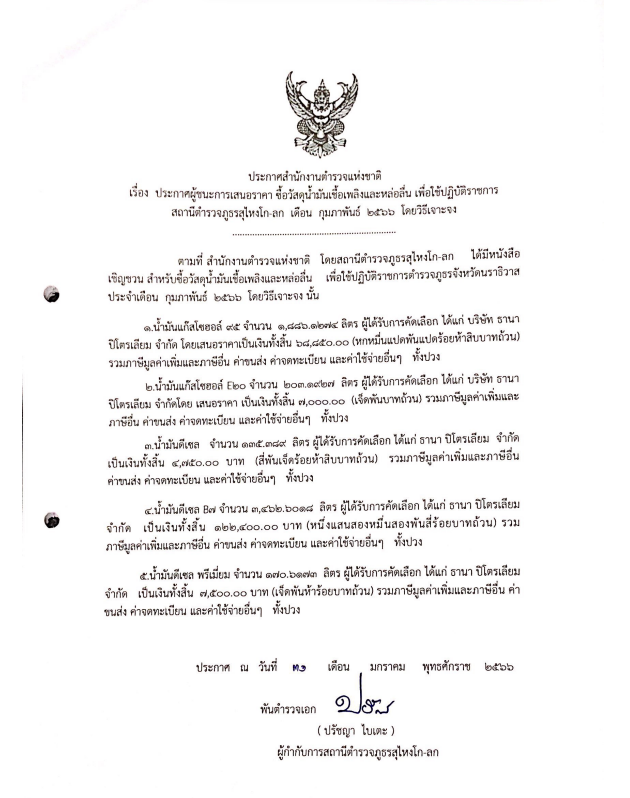 ประกาศสำนักงานตำรวจแห่งชาติ
เรื่อง ประกาศผู้ชนะการเสนอราคา ซื้อวัสดุน้ำมันเชื้อเพลิงและหล่อลื่น เพื่อใช้ปฏิบัติราชการ
สถานีตำรวจภูธรสุไหงโก-ลก เดือน กุมภาพันธ์ ๒๕๖๖ โดยวิธีเจาะจง
ตามที่ สำนักงานตำรวจแห่งชาติ โดยสถานีตำรวจภูธรสุไหงโก-ลก ได้มีหนังสือ
เชิญชวน สำหรับซื้อวัสดุน้ำมันเชื้อเพลิงและหล่อลื่น เพื่อใช้ปฏิบัติราชการตำรวจภูธรจังหวัดนราธิวาส
ประจำเดือน กุมภาพันธ์ ๒๕๖๖ โดยวิธีเจาะจง นั้น
๑.น้ำมันแก๊สโซฮอล์ ๙๕ จำนวน ๑,๘๘๖.๑๒๗๔ ลิตร ผู้ได้รับการคัดเลือก ได้แก่ บริษัท ธานา
ปิโตรเลียม จำกัด โดยเสนอราคาเป็นเงินทั้งสิ้น ๖๘,๘๕๐.๐๐ (หกหมื่นแปดพันแปดร้อยห้าสิบบาทถ้วน)
รวมภาษีมูลค่าเพิ่มและภาษีอื่น ค่าขนส่ง ค่าจดทะเบียน และค่าใช้จ่ายอื่นๆ ทั้งปวง
๒.น้ำมันแก๊สโซฮอล์ E๒๐ จำนวน ๒๐๓.๑๙๒๗ ลิตร ผู้ได้รับการคัดเลือก ได้แก่ บริษัท ธานา
ปิโตรเลียม จำกัดโดย เสนอราคา เป็นเงินทั้งสิ้น ๗,๐๐๐.๐๐ (เจ็ดพันบาทถ้วน) รวมภาษีมูลค่าเพิ่มและ
ภาษีอื่น ค่าขนส่ง ค่าจดทะเบียน และค่าใช้จ่ายอื่นๆ ทั้งปวง
๓.น้ำมันดีเซล จำนวน ๑๓๕.๓๘๙ ลิตร ผู้ได้รับการคัดเลือก ได้แก่ ธานา ปิโตรเลียม จำกัด
เป็นเงินทั้งสิ้น ๔,๗๕๐.๐๐ บาท (สี่พันเจ็ดร้อยห้าสิบบาทถ้วน) รวมภาษีมูลค่าเพิ่มและภาษีอื่น
ค่าขนส่ง ค่าจดทะเบียน และค่าใช้จ่ายอื่นๆ ทั้งปวง
๔.น้ำมันดีเซล B๗ จำนวน ๓,๔๖๒.๖๐๑๘ ลิตร ผู้ได้รับการคัดเลือก ได้แก่ ธานา ปิโตรเลียม
จำกัด เป็นเงินทั้งสิ้น ๑๒๒,๔๐๐.๐๐ บาท (หนึ่งแสนสองหมื่นสองพันสี่ร้อยบาทถ้วน) รวม
ภาษีมูลค่าเพิ่มและภาษีอื่น ค่าขนส่ง ค่าจดทะเบียน และค่าใช้จ่ายอื่นๆ ทั้งปวง
๕.น้ำมันดีเซล พรีเมี่ยม จำนวน ๑๗๐.๖๑๗๓ ลิตร ผู้ได้รับการคัดเลือก ได้แก่ ธานา ปิโตรเลียม
จำกัด เป็นเงินทั้งสิ้น ๗,๕๐๐.๐๐ บาท (เจ็ดพันห้าร้อยบาทถ้วน) รวมภาษีมูลค่าเพิ่มและภาษีอื่น ค่า
ขนส่ง ค่าจดทะเบียน และค่าใช้จ่ายอื่นๆ ทั้งปวง
ประกาศ ณ วันที่ ๓๑ เดือน มกราคม พุทธศักราช ๒๕๖๖
พันตำรวจเอก
( ปรัชญา ไบเตะ )
ผู้กำกับการสถานีตำรวจภูธรสุไหงโก-ลก